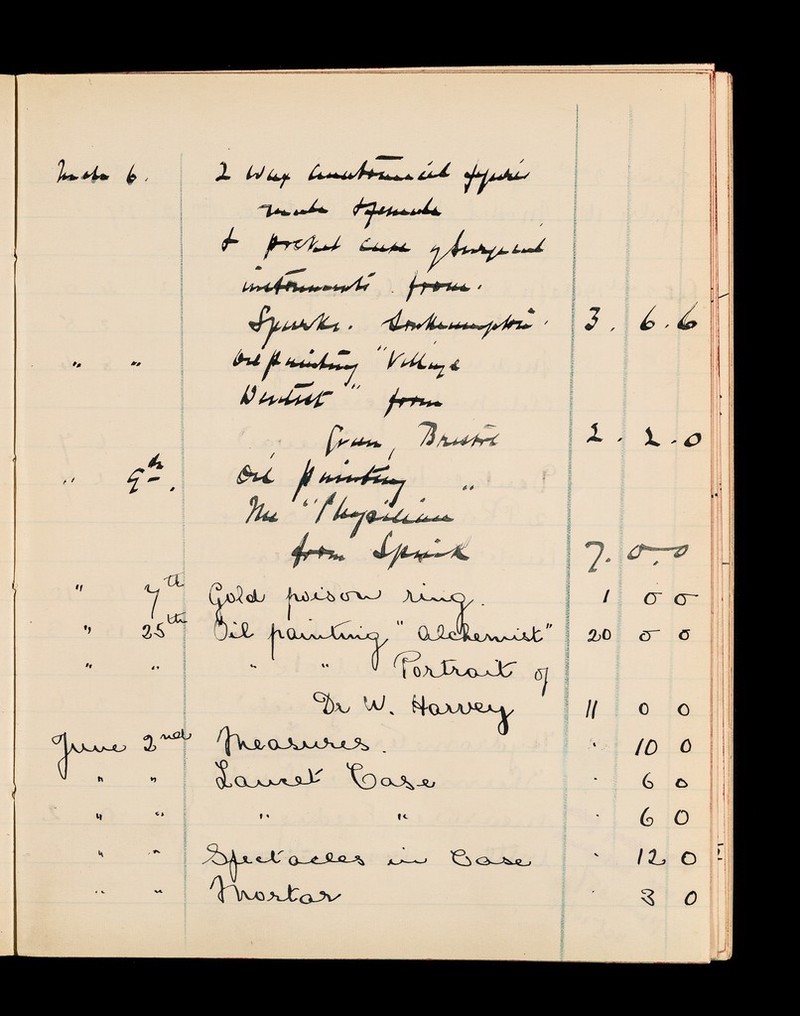 6. 2 wax anatomical figures
male & female
& pocket case of surgical
instruments from.
Sparks. Southampton. 3. 6. 6
" " Oil painting "Village
Dentist" from
Bristol 2. 2. 0
" 9th. Oil painting "
The "Physician
from Spink 7. 0. 0
" 7th Gold poison ring. 1 0 0
" 25th Oil painting "Alchemist" 20 0 0
" " " " Portrait of
Dr W. Harvey 11 0 0
June 2nd Measures. . 10 0
" " Lancet Case . 6 0
" " " " . 6 0
" " Spectacles in Case . 12 0
" " Mortar . 3 0